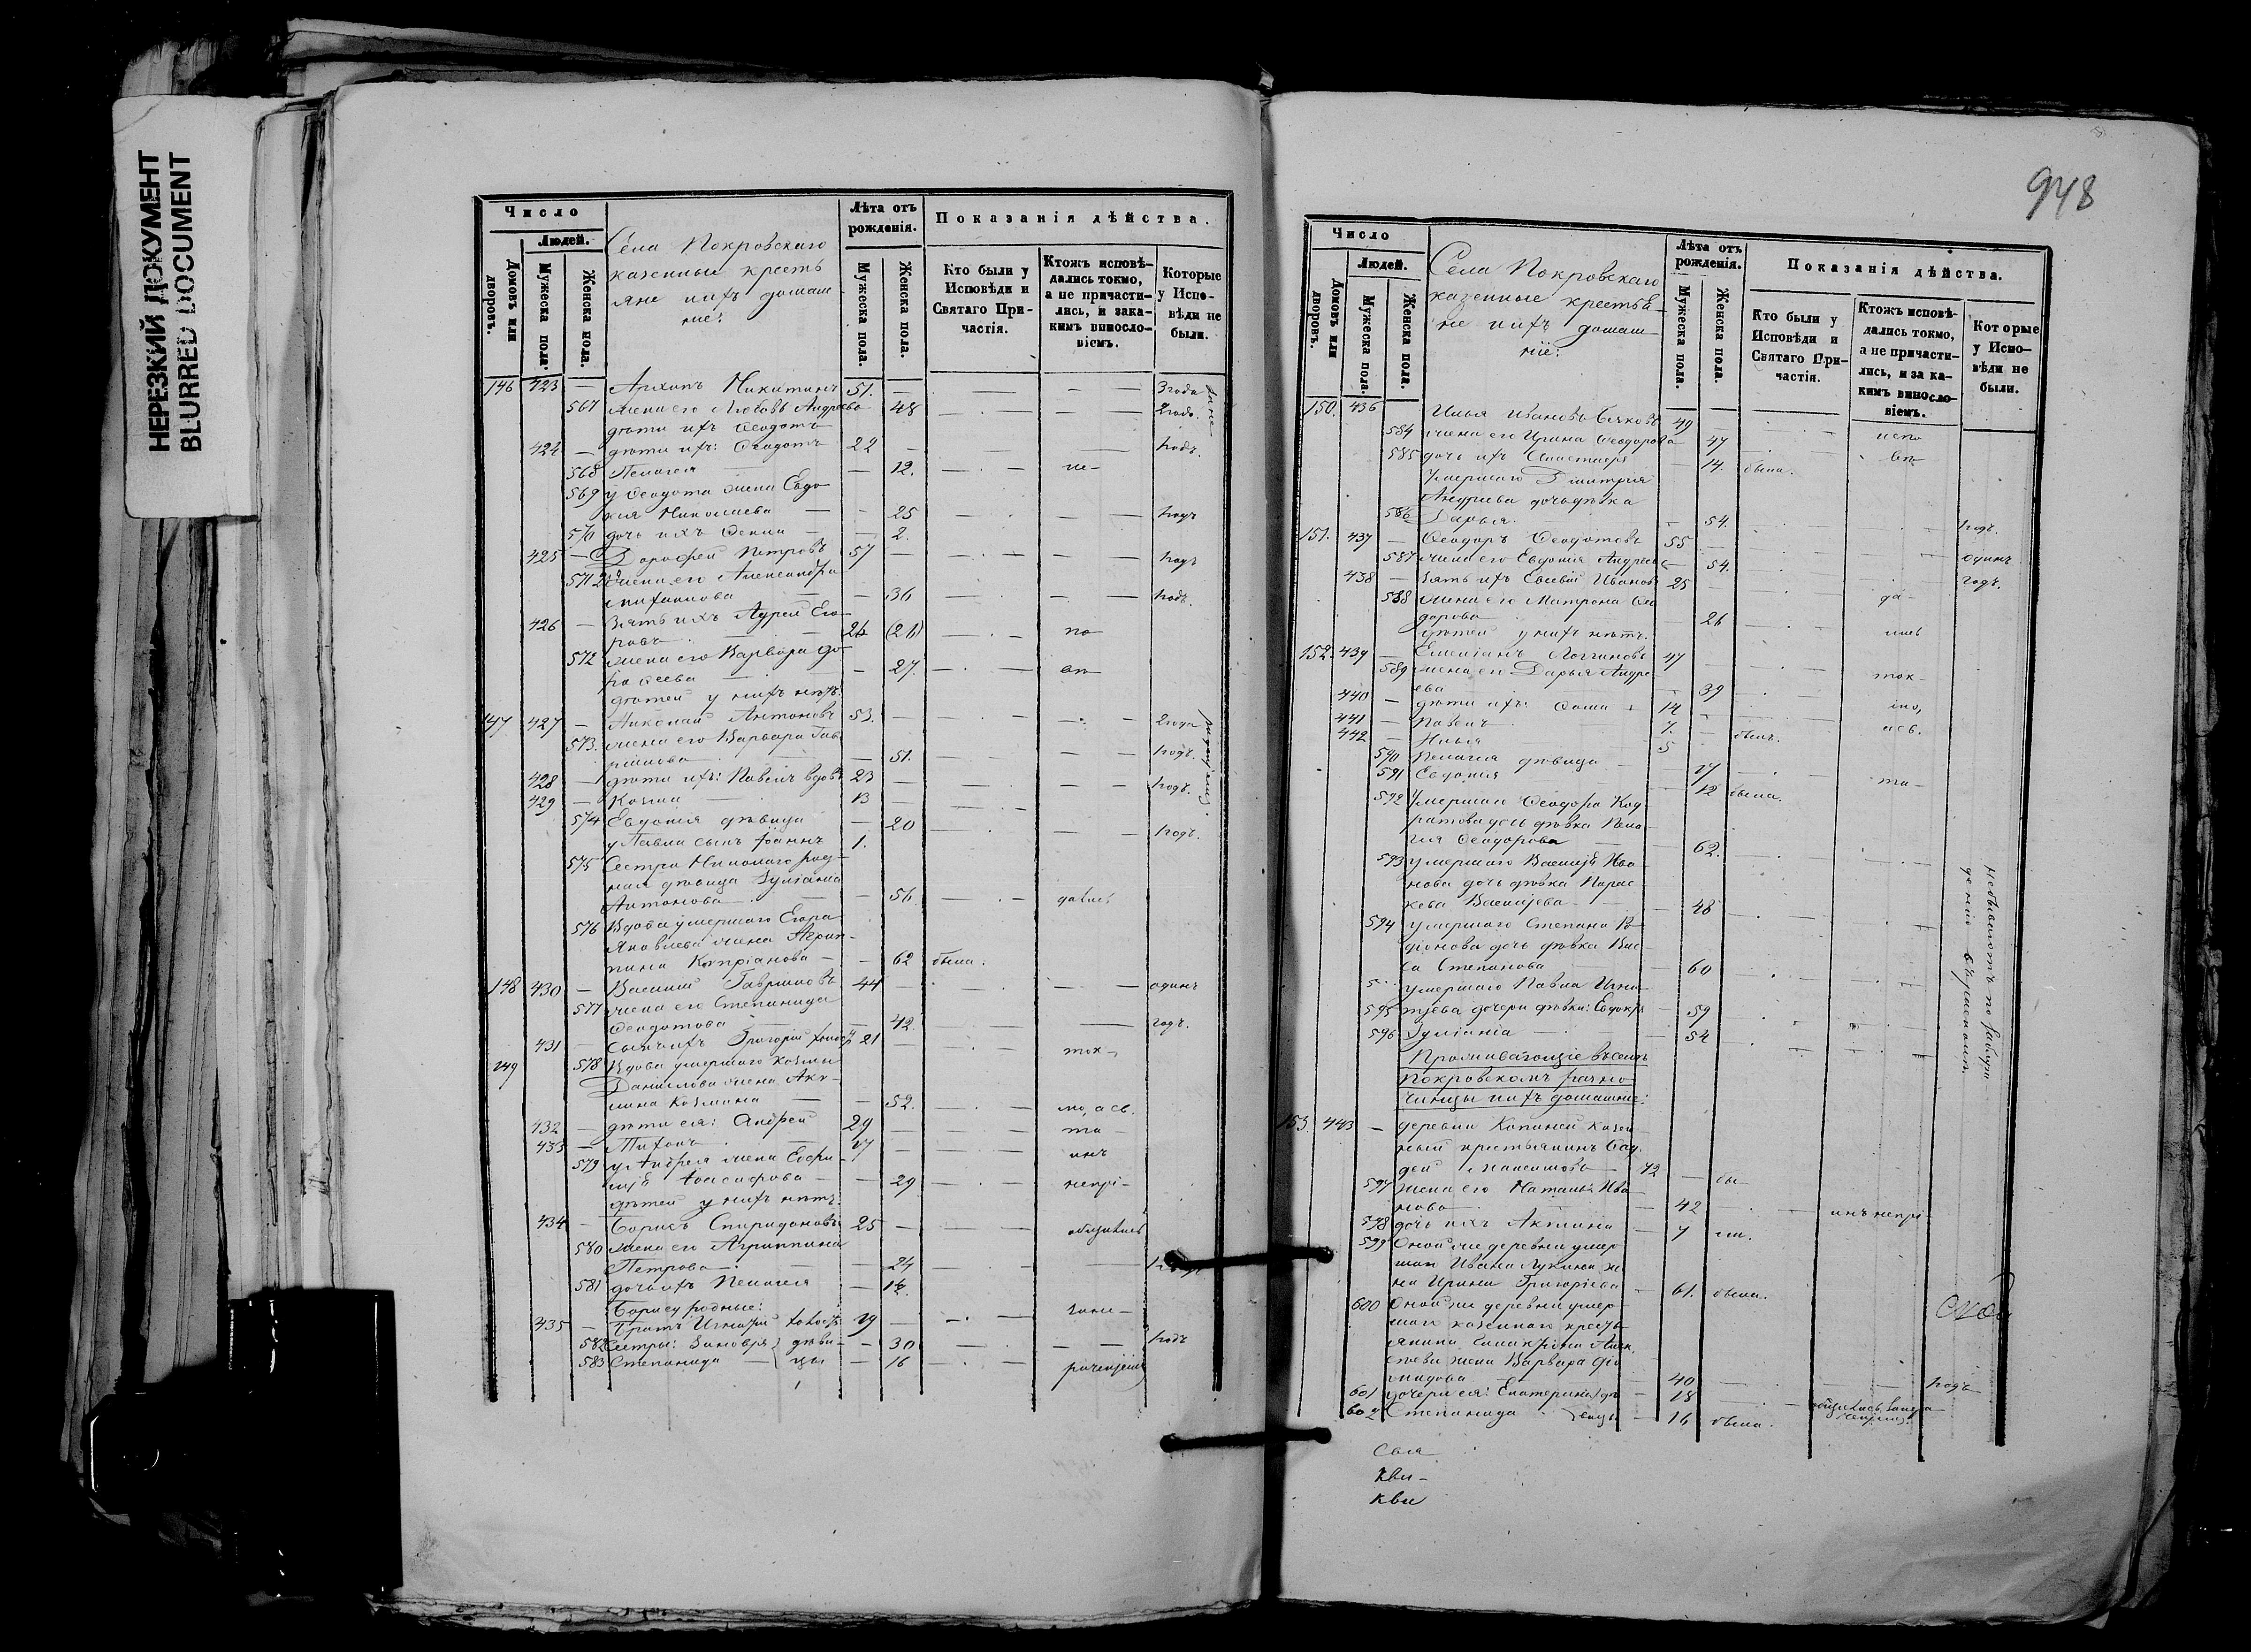 НЕРЕЗКИЙ ДОКУМЕНТ
BLURRED DOCUMENT
Число
Людей.
Домовъ или дворовъ.
Мужеска пола.
Женска пола.
Села Покровскаго
казенные кресть
яне ихъ домаш
ніе:
Лѣта отъ рожденія.
Мужеска пола.
Женска пола.
Показанія дѣйства.
Кто были у Исповѣди и Святаго Причастія.
Ктожъ исповѣдались токмо, а не причастились, и закакимъ винословіемъ.
Которые у Исповѣди не были.
146 423 — Архипъ Никитинъ 51. — 3 года
567 жена его Любовь Андреева 48 2 года
дѣти ихъ Ѳеодотъ
424 — дѣти ихъ: Ѳеодотъ 22 1 годъ.
568 Пелагея — 12. не-
569 у Ѳеодота жена Евдо
кия Николаева — 25 1 годъ
570 дочь ихъ Ѳекла — 2.
425 — Дорофей Петровъ 57 1 годъ
571 2я жена его Александра
36 1 годъ.
426 — Зять ихъ Андрей Его-
ровъ 26 (21) по
572 жена его Варвара До
роѳеева — 27. вп
дѣтей у нихъ нѣтъ.
147 427 — Николай Антоновъ 53. 2 года
573. жена его Варвара Гав
рилова — 51. 1 годъ.
428 — дѣти ихъ: Павелъ вдовъ 23 1 годъ.
429 — Козма 13
574 Евдокія дѣвица — 20 1 годъ.
у Павла сынъ Іоаннъ 1.
575 Сестра Николаю род-
ная дѣвица Іуліанія
Антонова — 56 давись
576 Вдова умершаго Егора
Яковлева жена Агрип-
пина Кипріанова — 62 была.
148 430 — Василій Гавриловъ 44 одинъ
577 жена его Степанида
Ѳеодотова — 42. годъ.
431 — Сынъ ихъ Григорій холостъ 21 ток-
149 578 Вдова умершаго Козмы
Даніилова жена Аку-
лина Козмина — 52. мо, а св.
432 — дѣти ея: Андрей 29 та
433 — Тихонъ 17 инъ
579 у Андрея жена Евфи-
29 непрі-
дѣтей у нихъ нѣтъ.
434 — Борисъ Спиридоновъ 25 общились
580 жена его Агриппина
Петрова — 24 1 годъ
581 дочь ихъ Пелагея — 1½.
Борису родные:
435 — Братъ Игнатій холостъ 19
582 Сестры: Зиновія } дѣви- 30 1 годъ
583 Степанида } цы 16
948
Число
Людей.
Домовъ или дворовъ.
Мужеска пола.
Женска пола.
Села Покровскаго
казенные крестья-
не ихъ домаш
ніе:
Лѣта отъ рожденія.
Мужеска пола.
Женска пола.
Показанія дѣйства.
Кто были у Исповѣди и Святаго Причастія.
Ктожъ исповѣдались токмо, а не причастились, и за какимъ винословіемъ.
Которые у Исповѣди не были.
150. 436 Илья Ивановъ 49 испо
584 жена его Ирина Ѳеодорова 47 вѣ
585 дочь ихъ Анастасія 14. была.
Умершаго Дмитрія
Андреева дочь дѣвка
586 Дарья. 54. 1 годъ.
151. 437 — Ѳеодоръ Ѳеодотовъ 55
587 жена его Евдокія Андреева 54. одинъ
438 — Зять ихъ Евсевій Ивановъ 25 годъ.
588 жена его Матрона Ѳео
дорова 26 да-
дѣтей у нихъ нѣтъ. лись
152. 439 — Емеліанъ Логгиновъ 47
589 жена его Дарья Андре
ева 39 ток-
440 — дѣти ихъ: Ѳома 14 мо,
441 — Павелъ 7. былъ. а св.
442 — Илья 5
590 Пелагея дѣвица 17
591 Евдокія 12 была. та-
592 Умершаго Ѳеодора Код
ратова дочь дѣвка Пела
гія Ѳеодорова 62.
593 умершаго Василія Ива
нова дочь дѣвка Парас
кева Василіева 48
594 умершаго Степана Ро
діонова дочь дѣвка Вас
са Степанова 60
умершаго Павла Игна-
595 тіева дочери дѣвки: Евдокія 59
596 Іуліанія 54
небываютъ по заблуж
денію въ расколъ.
Проживающіе въ селѣ
Покровскомъ разно-
чинцы ихъ домашніе:
153. 443 — деревни Копиней казен
ный крестьянинъ Ѳад
дей Максимовъ 42 бы-
597 жена его Наталья Ива
нова 42 инъ непрі-
598 дочь ихъ Акилина 7 ли.
599 Оной же деревни умер
шаго Ивана Лукина же
на Ирина Григорьева 61. была.
600 Оной же деревни умер
шаго казеннаго кресть
янина
жена Варвара
40 1 годъ
601 дочери ея: Екатерина } дѣ 18
602 Степанида } вицы 16 была.
Свя
кви-
кви